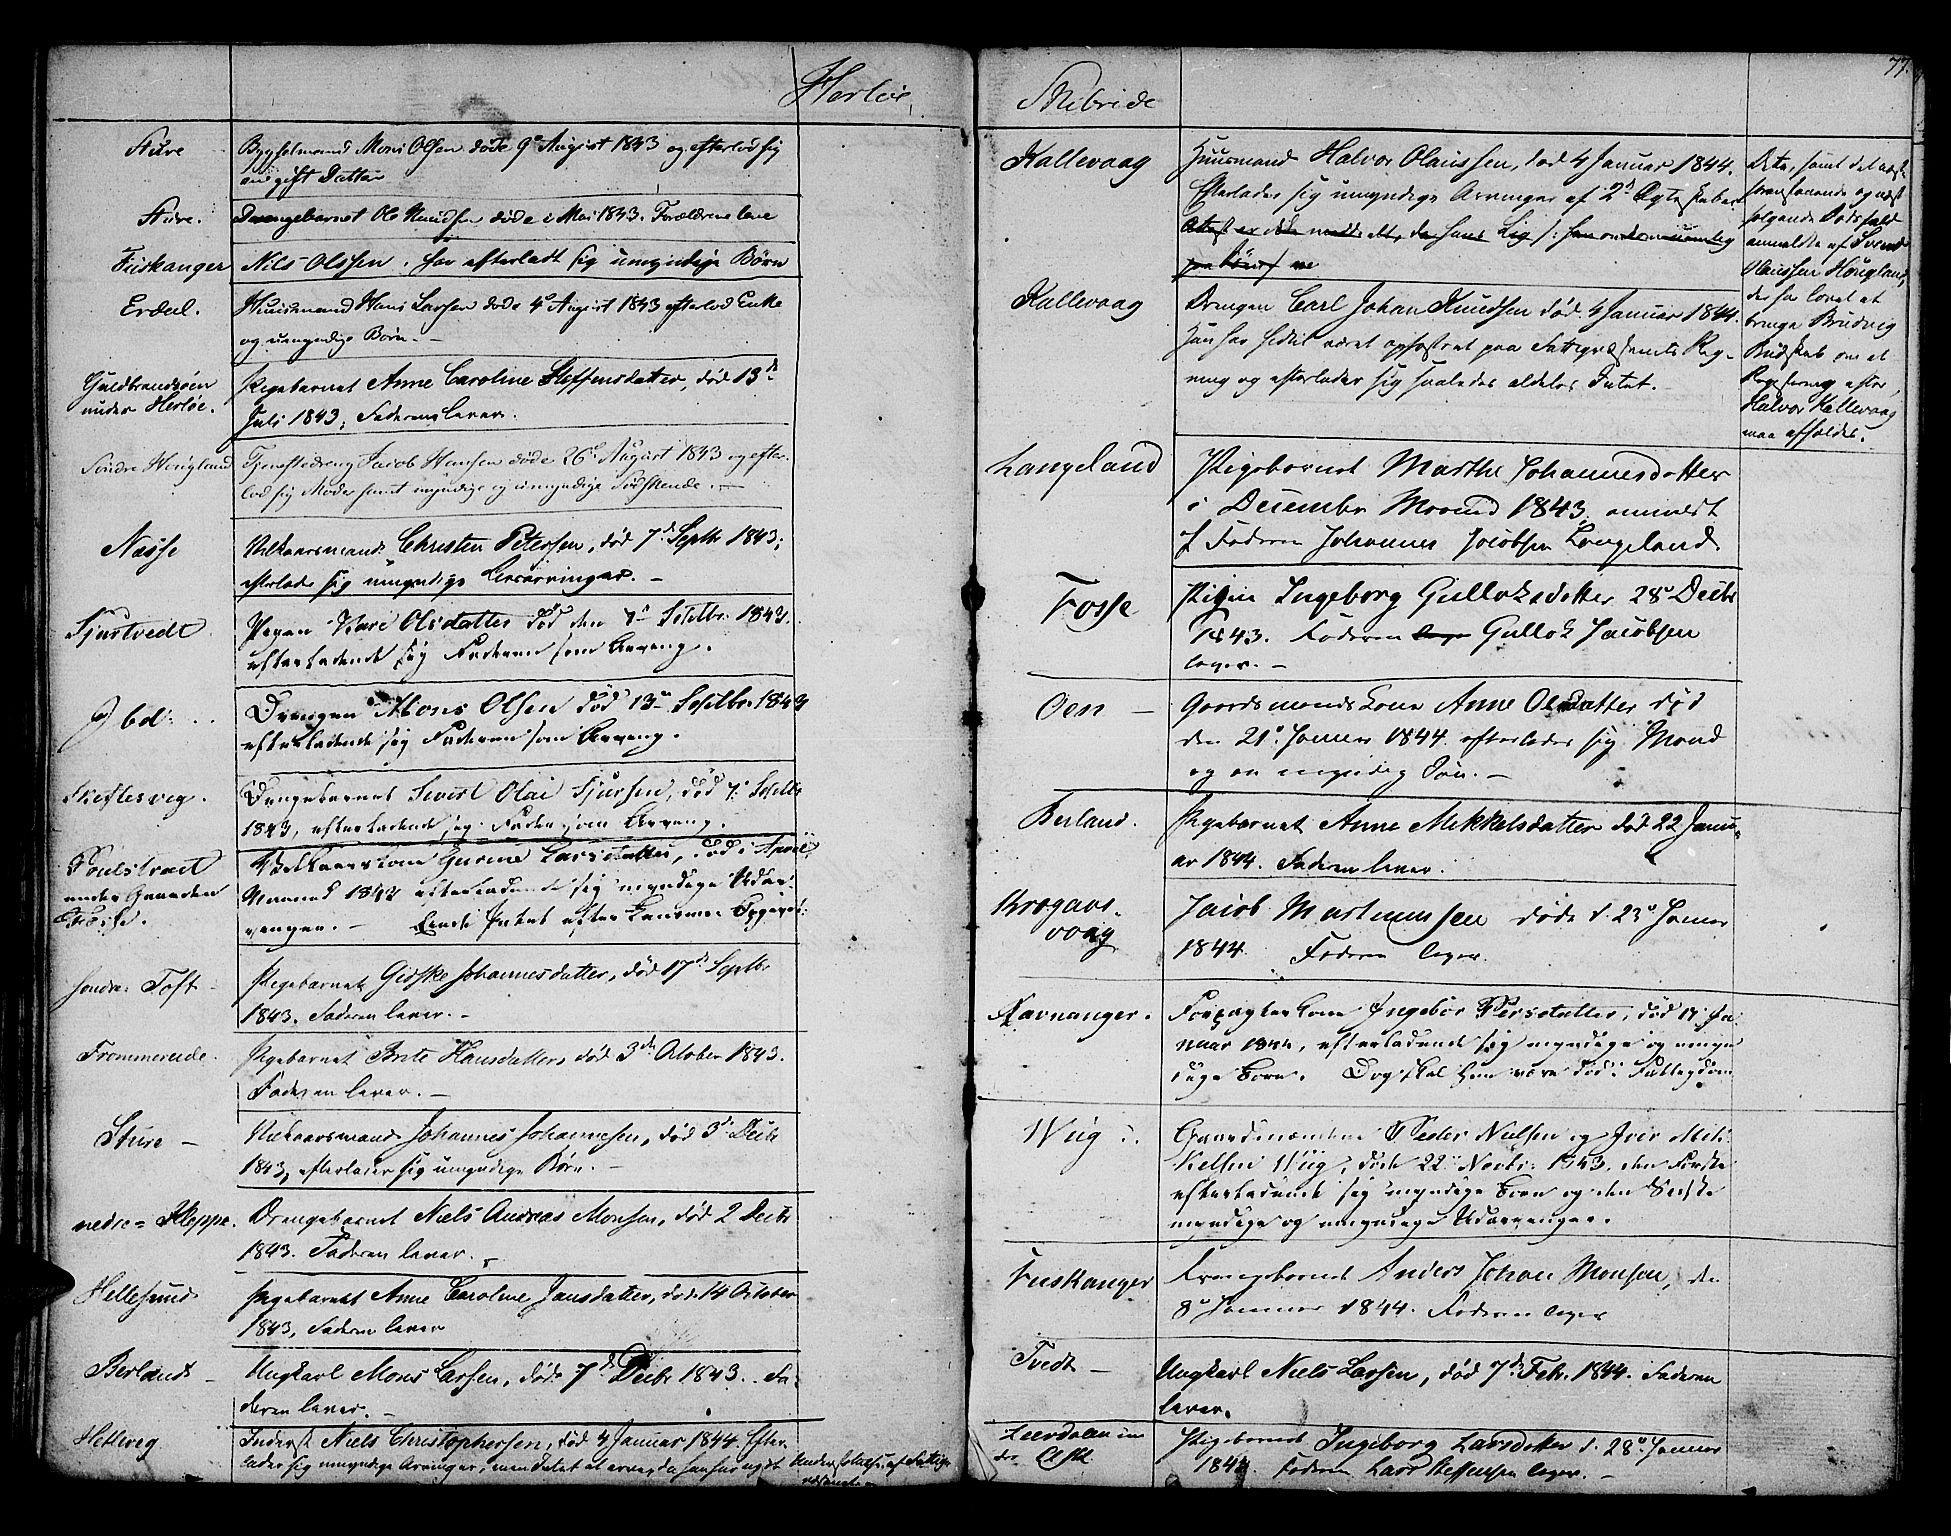 Herløe
Sture
Bygselmand Mons Olsen døde 9de August 1843 og efterlod sig
en gift Datter
Sture.
Drengebarnet Ole Knudsen døde i Mai 1843. Forældrene leve
Fuskanger
Nils Olssen, har efterladt sig umyndige Børn
Erdal.
Huusmand Hans Larsen døde 4de August 1843 efterlod Enke
og umyndige Børn. -
Guldbrandsøen
under Herløe.
Pigebarnet Anne Caroline Steffensdatter, død 13de
Juli 1843, Faderen lever.
Søndre Hougland
Tjenestedreng Jacob Hansen døde 26de August 1843 og efter-
lod sig Moder samt myndige og umyndige Sødskende. -
Næsse
Vilkaarsmand Christen Petersen, død 7de Septbr 1843;
efterlader sig umyndige Livsarvinger. -
Tjurtvedt.
Pigen Kari Olsdatter død den Septbr. 1843.
efterladende sig Faderen som Arving.
Ibd:
Drengen Mons Olsen død 13de Septbr. 1843
efterladende sig Faderen som Arving.
Skjeflesvig.
Drengebarnet Sivert Olai Sjursen, død 7. Septbr
1843, efterladende sig Fader som Arving.
under Gaarden
Fosse.
Vilkaarskone Gurine Larsdatter, død i April
Maaned 1842 efterladende sig myndige Udar-
vinger. -
søndre Toft -
Pigebarnet Gidske Johannesdatter, død 17de Septbr
1843. Faderen lever. -
Frommereide.
Pigebarnet Brite Hansdatter død 3de October 1843.
Faderen lever. -
Sture -
Vilkaarsmand Johannes Johannesen, død 3de Decbr
1843, efterlader sig umyndige Børn. -
nedre = Kleppe.
Drengebarnet Niels Andreas Monsen, død 2 Decbr
1843. Faderen lever. -
Hellesund
Pigebarnet Anne Caroline Jansdatter, døde 14 October
1843, Faderen lever
Berland -
Ungkarl Mons Larsen, døde 7de Decbr 1843. Fa-
deren lever. -
Hellevig
Inderst Niels Christophersen, død 4 Januar 1844. Efter-
lader sig umyndige Arvinger, men Intet at arve, da han har nydt
Understøttelse af Fattig-
væsenet. -
77.
Skibrede
Kallevaag
Huusmand Halvor Olaussen, død 4 Januar 1844.
Efterlader sig umyndige Arvinger af 2de Ægteskaber
Kallevaag
Drengen Carl Johan Knudsen død 4 Januar 1844.
Han har hidtil været opfostret paa Fattigvæsenets Reg-
ning og efterlader sig saaledes aldeles Intet.
Dette, samt det næst
foranstaaende og næst
følgende Dødsfald
anmeldte af Svend
Hanssen Hougland,
der har lovet at
bringe Brudvig
Budskab om at
Registrering efter
Halvor Kallevaag
maa afholdes.
Langeland
Pigebarnet Marthe Johannesdatter
i December Maaned 1843 anmeldt
af Faderen Johannes Jacobsen Langeland.
Fosse
Pigen Ingeborg Gulloksdatter 28de Decbr
1843. Faderen Gullok Jacobsen
lever. -
Oen -
Gaardsmands Kone Anne Olsdatter død
den 21de Januar 1844. efterlader sig Mand
og en myndig Søn. -
Berland.
Pigebarnet Anne Mikkelsdatter død 22 Janu-
ar 1844. Faderen lever.
Krogaas-
vaag
Jacob Martinussen døde d. 23de Januar
1844. Faderen lever.
Ravnanger.
Forpagterkone Ingebor Persdatter, død 17 Ja-
nuar 1844, efterladende sig myndige og umyn-
dige Børn. Dog skal hun være død i Fattigdom
Wiig
Gaardmændene Peder Nielsen og Iver Mik-
kelsen Wiig, døde 22de Novbr. 1843, den Første
efterladende sig myndige Børn og den Sidste
myndige og umyndige Udarvinger.
Fuskanger
Drengebarnet Anders Johan Monsen, den
8de Januar 1844. Faderen lever
Tvedt -
Ungkarl Niels Larsen, død 7de Febr. 1844. Faderen
lever.
Pigebarnet Ingeborg Larsdatter d. 28de Januar
1844. Faderen Lars Steffensen lever. -